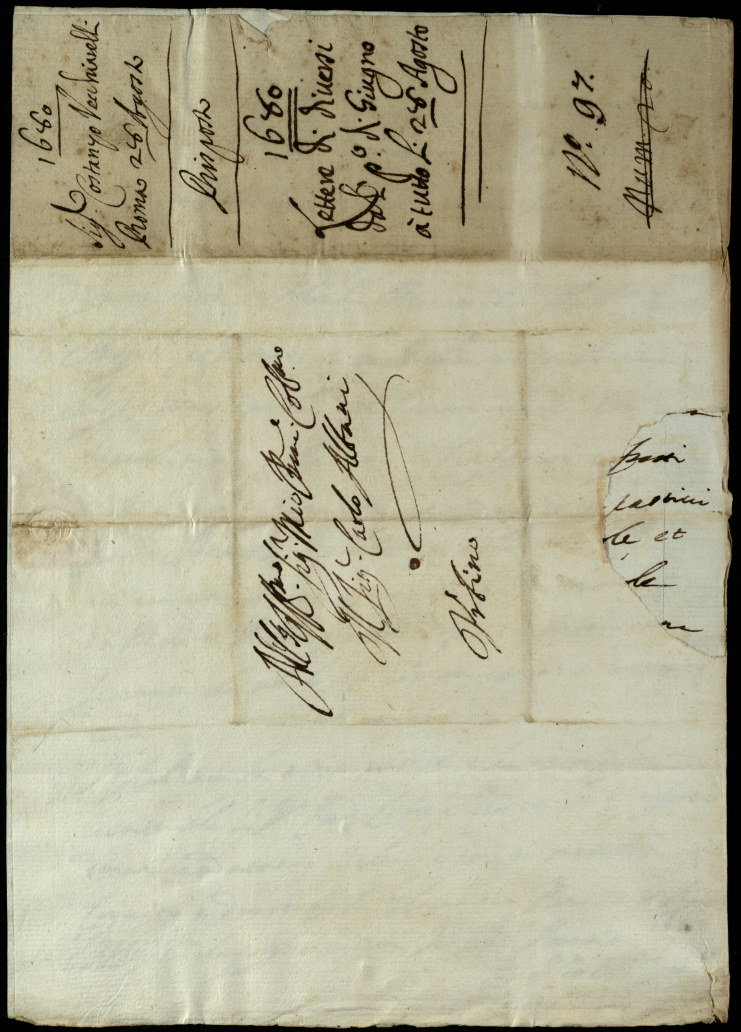 1680
Sig.r Costanzo Vecchiarelli
Roma 28 Agosto
Risposta
1680
Lettere di diuersi
dal p.o di Giugno
à tutto li 28 Agosto
N.o 97.
All Ill.mo Sig.r mio Col.mo
Il Sig.r Carlo Albani
Vrbino
le et
le